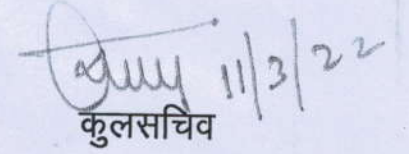 11/3/22
कुलसचिव